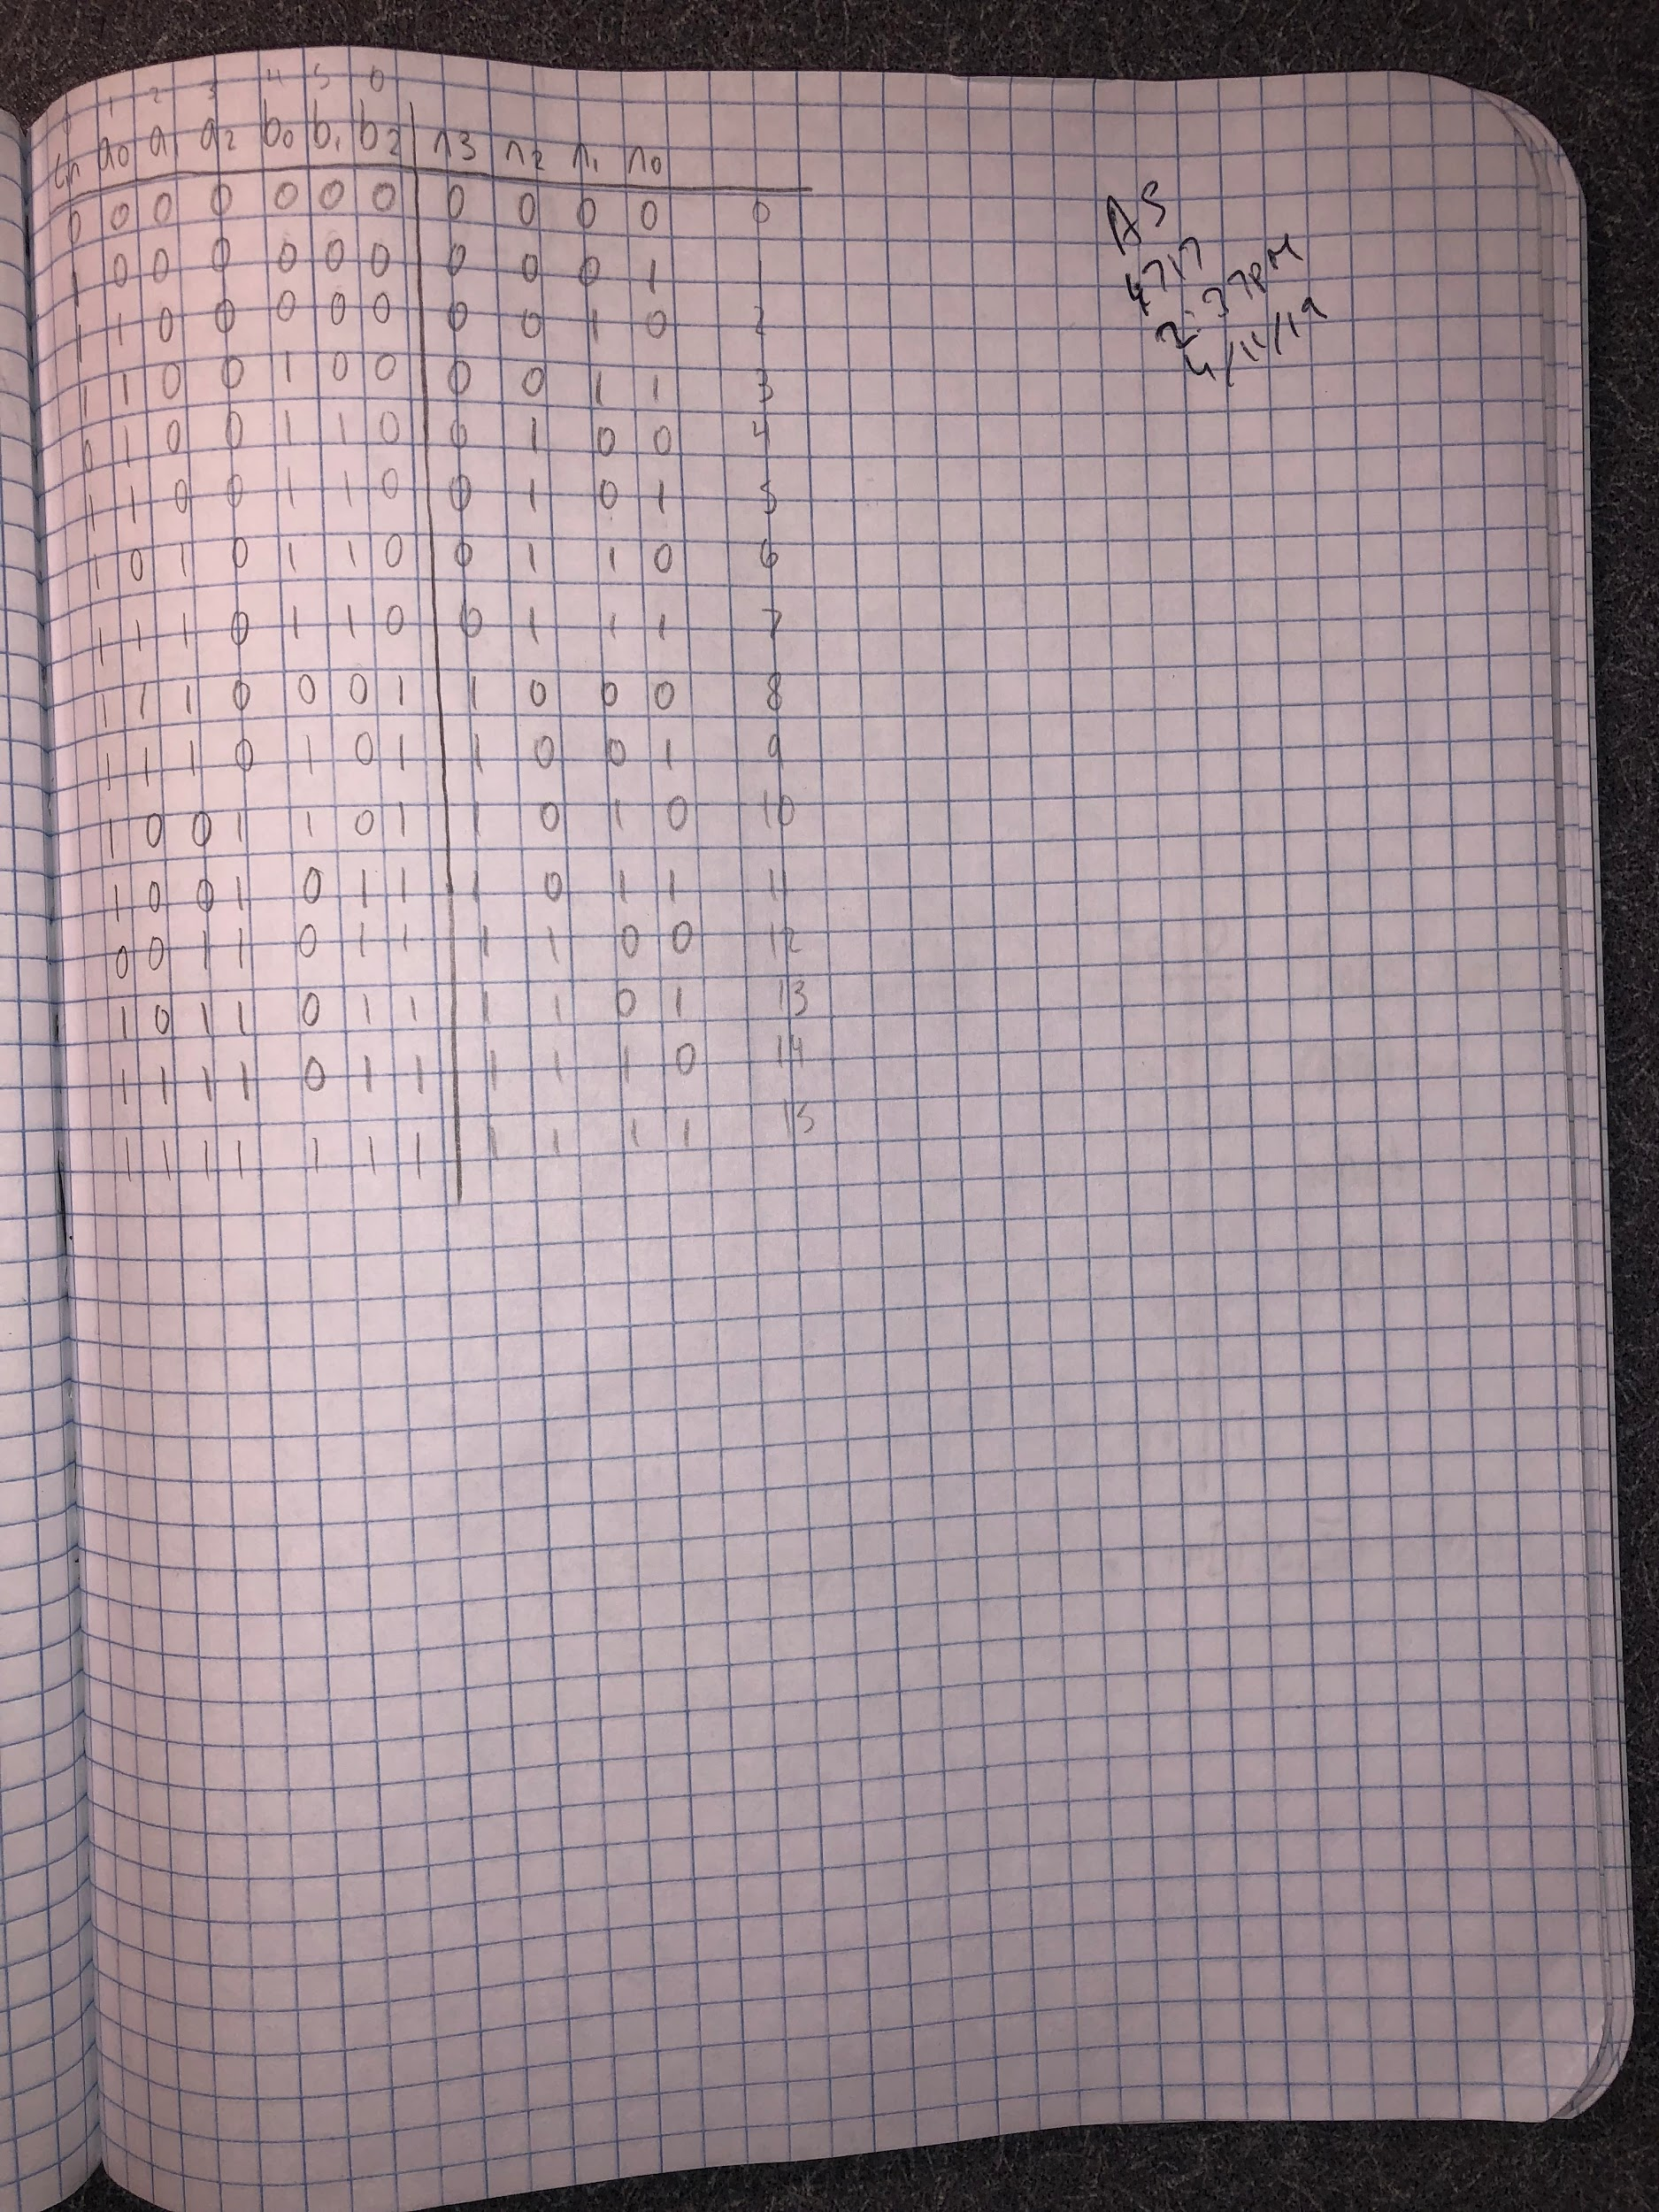 1 2 3 4 5 6
Cin a0 a1 a2 b0 b1 b2 n3 n2 n1 n0
0 0 0 0 0 0 0 0 0 0 0 0
1 0 0 0 0 0 0 0 0 0 1 1
1 1 0 0 0 0 0 0 0 1 0 2
1 1 0 0 1 0 0 0 0 1 1 3
0 1 0 0 1 1 0 0 1 0 0 4
1 1 0 0 1 1 0 0 1 0 1 5
1 0 1 0 1 1 0 0 1 1 0 6
1 1 1 0 1 1 0 0 1 1 1 7
1 1 1 0 0 0 1 1 0 0 0 8
1 1 1 0 1 0 1 1 0 0 1 9
1 0 0 1 1 0 1 1 0 1 0 10
1 0 0 1 0 1 1 1 0 1 1 11
0 0 1 1 0 1 1 1 1 0 0 12
1 0 1 1 0 1 1 1 1 0 1 13
1 1 1 1 0 1 1 1 1 1 0 14
1 1 1 1 1 1 1 1 1 1 1 15
AS
4717
2:37PM
4/11/19